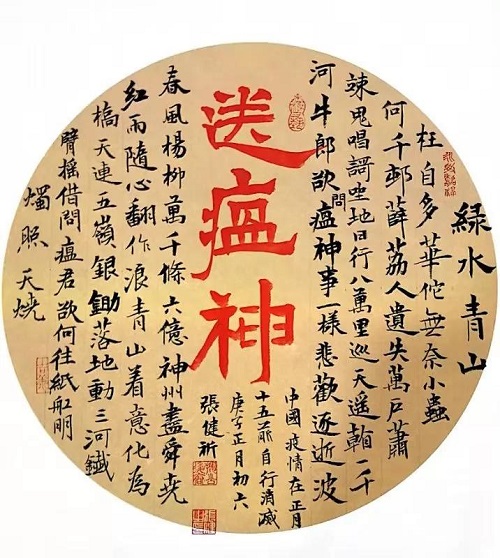 送瘟神
綠水青山
枉自多華佗無奈小蟲
何千邨薜荔人遺失萬戶蕭
疎鬼唱謌坐地日行八萬里巡天遥一千
河牛郎欲問瘟神事一樣悲歡逐逝波
春風楊柳萬千條六億神州盡舜堯
紅雨隨心翻作浪青山着意化為
橋天連五嶺銀鋤落地動三河鐵
臂摇借問瘟君欲何往紙船明
燭照天燒
中國疫情在正月
十五前自行消滅
庚子正月初六
張健祈